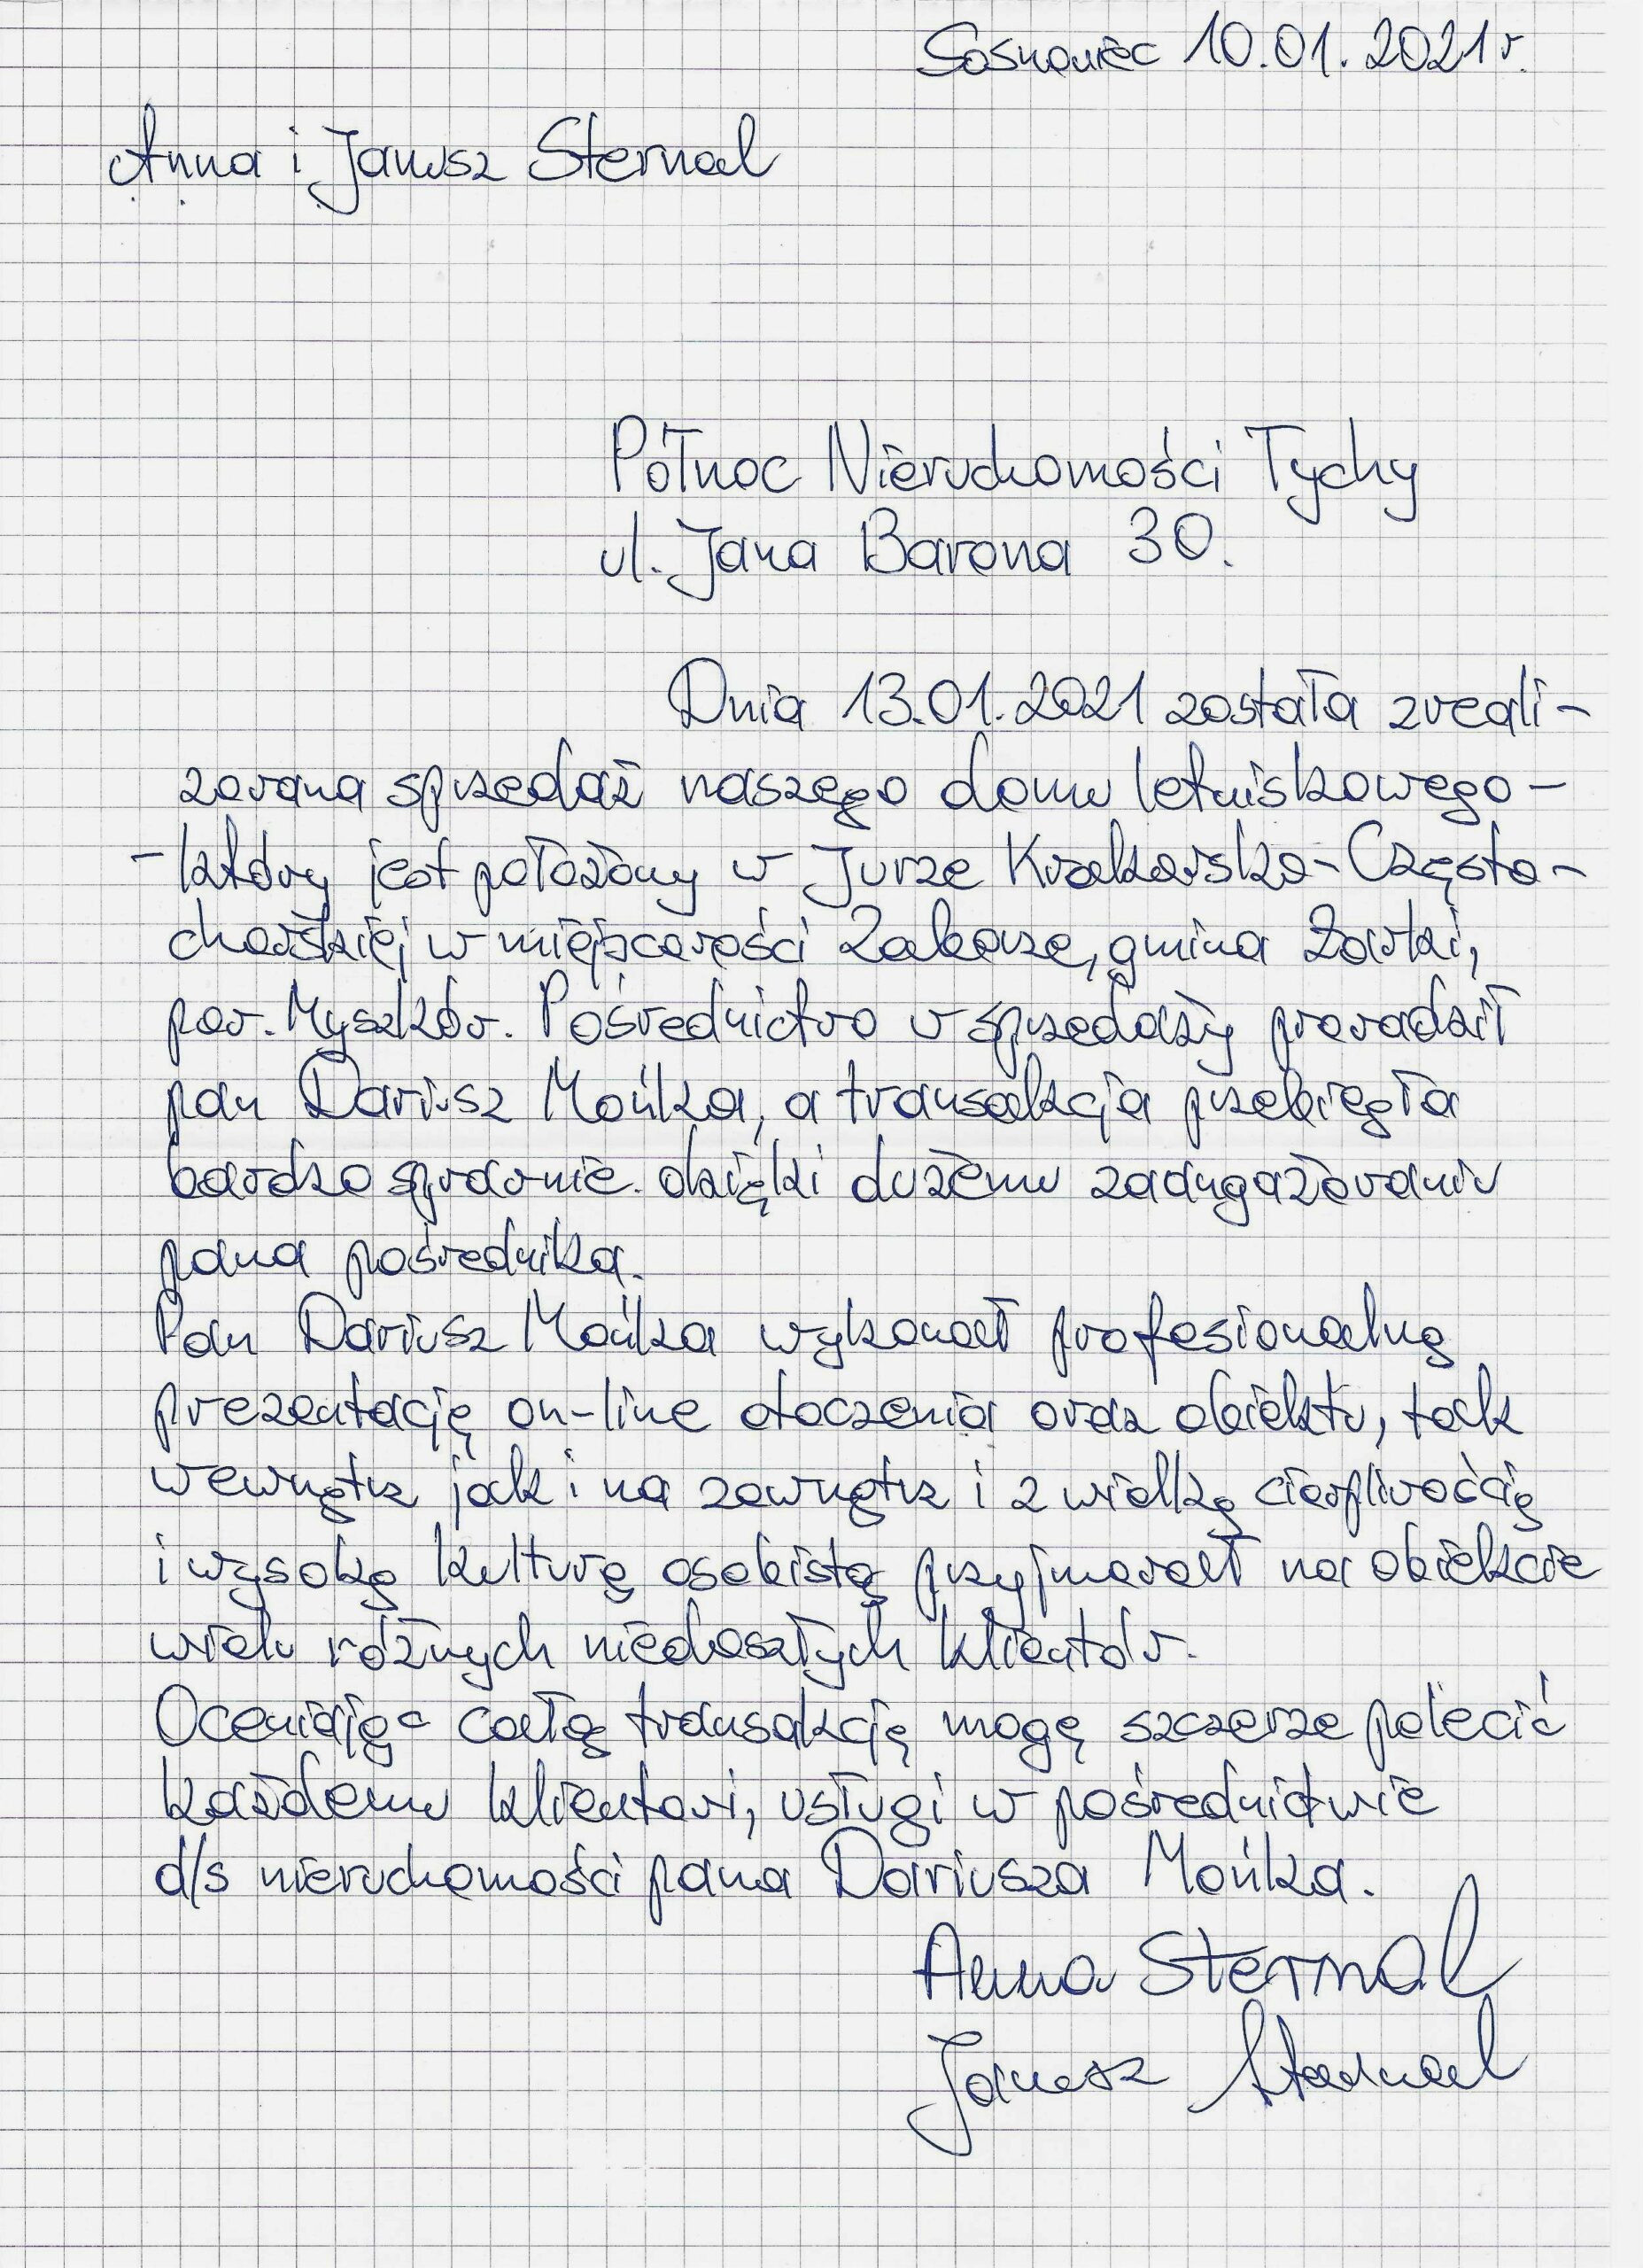 Sosnowiec 10.01.2021 r.
Anna i Janusz Sternal
Północ Nieruchomości Tychy
ul. Jana Barona 30.
Dnia 13.01.2021 została zreali-
zowana sprzedaż naszego domu letniskowego -
- który jest położony w Jurze Krakowsko-Często-
chowskiej w miejscowości Zaborze, gmina Żarki,
pow. Myszków. Pośrednictwo w sprzedaży prowadził
pan Dariusz Mońka, a transakcja przebiegła
bardzo sprawnie. dzięki dużemu zaangażowaniu
pana pośrednika.
Pan Dariusz Mońka wykonał profesionalną
prezentację on-line otoczenia oraz obiektu, tak
wewnątrz jak i na zewnątrz i z wielką cierpliwością
i wysoką kulturą osobistą przyjmował na obiekcie
wielu różnych niedoszłych klientów.
Oceniając całą transakcję mogę szczerze polecić
każdemu klientowi, usługi w pośrednictwie
d/s nieruchomości pana Dariusza Mońka.
Anna Sternal
Janusz Sternal